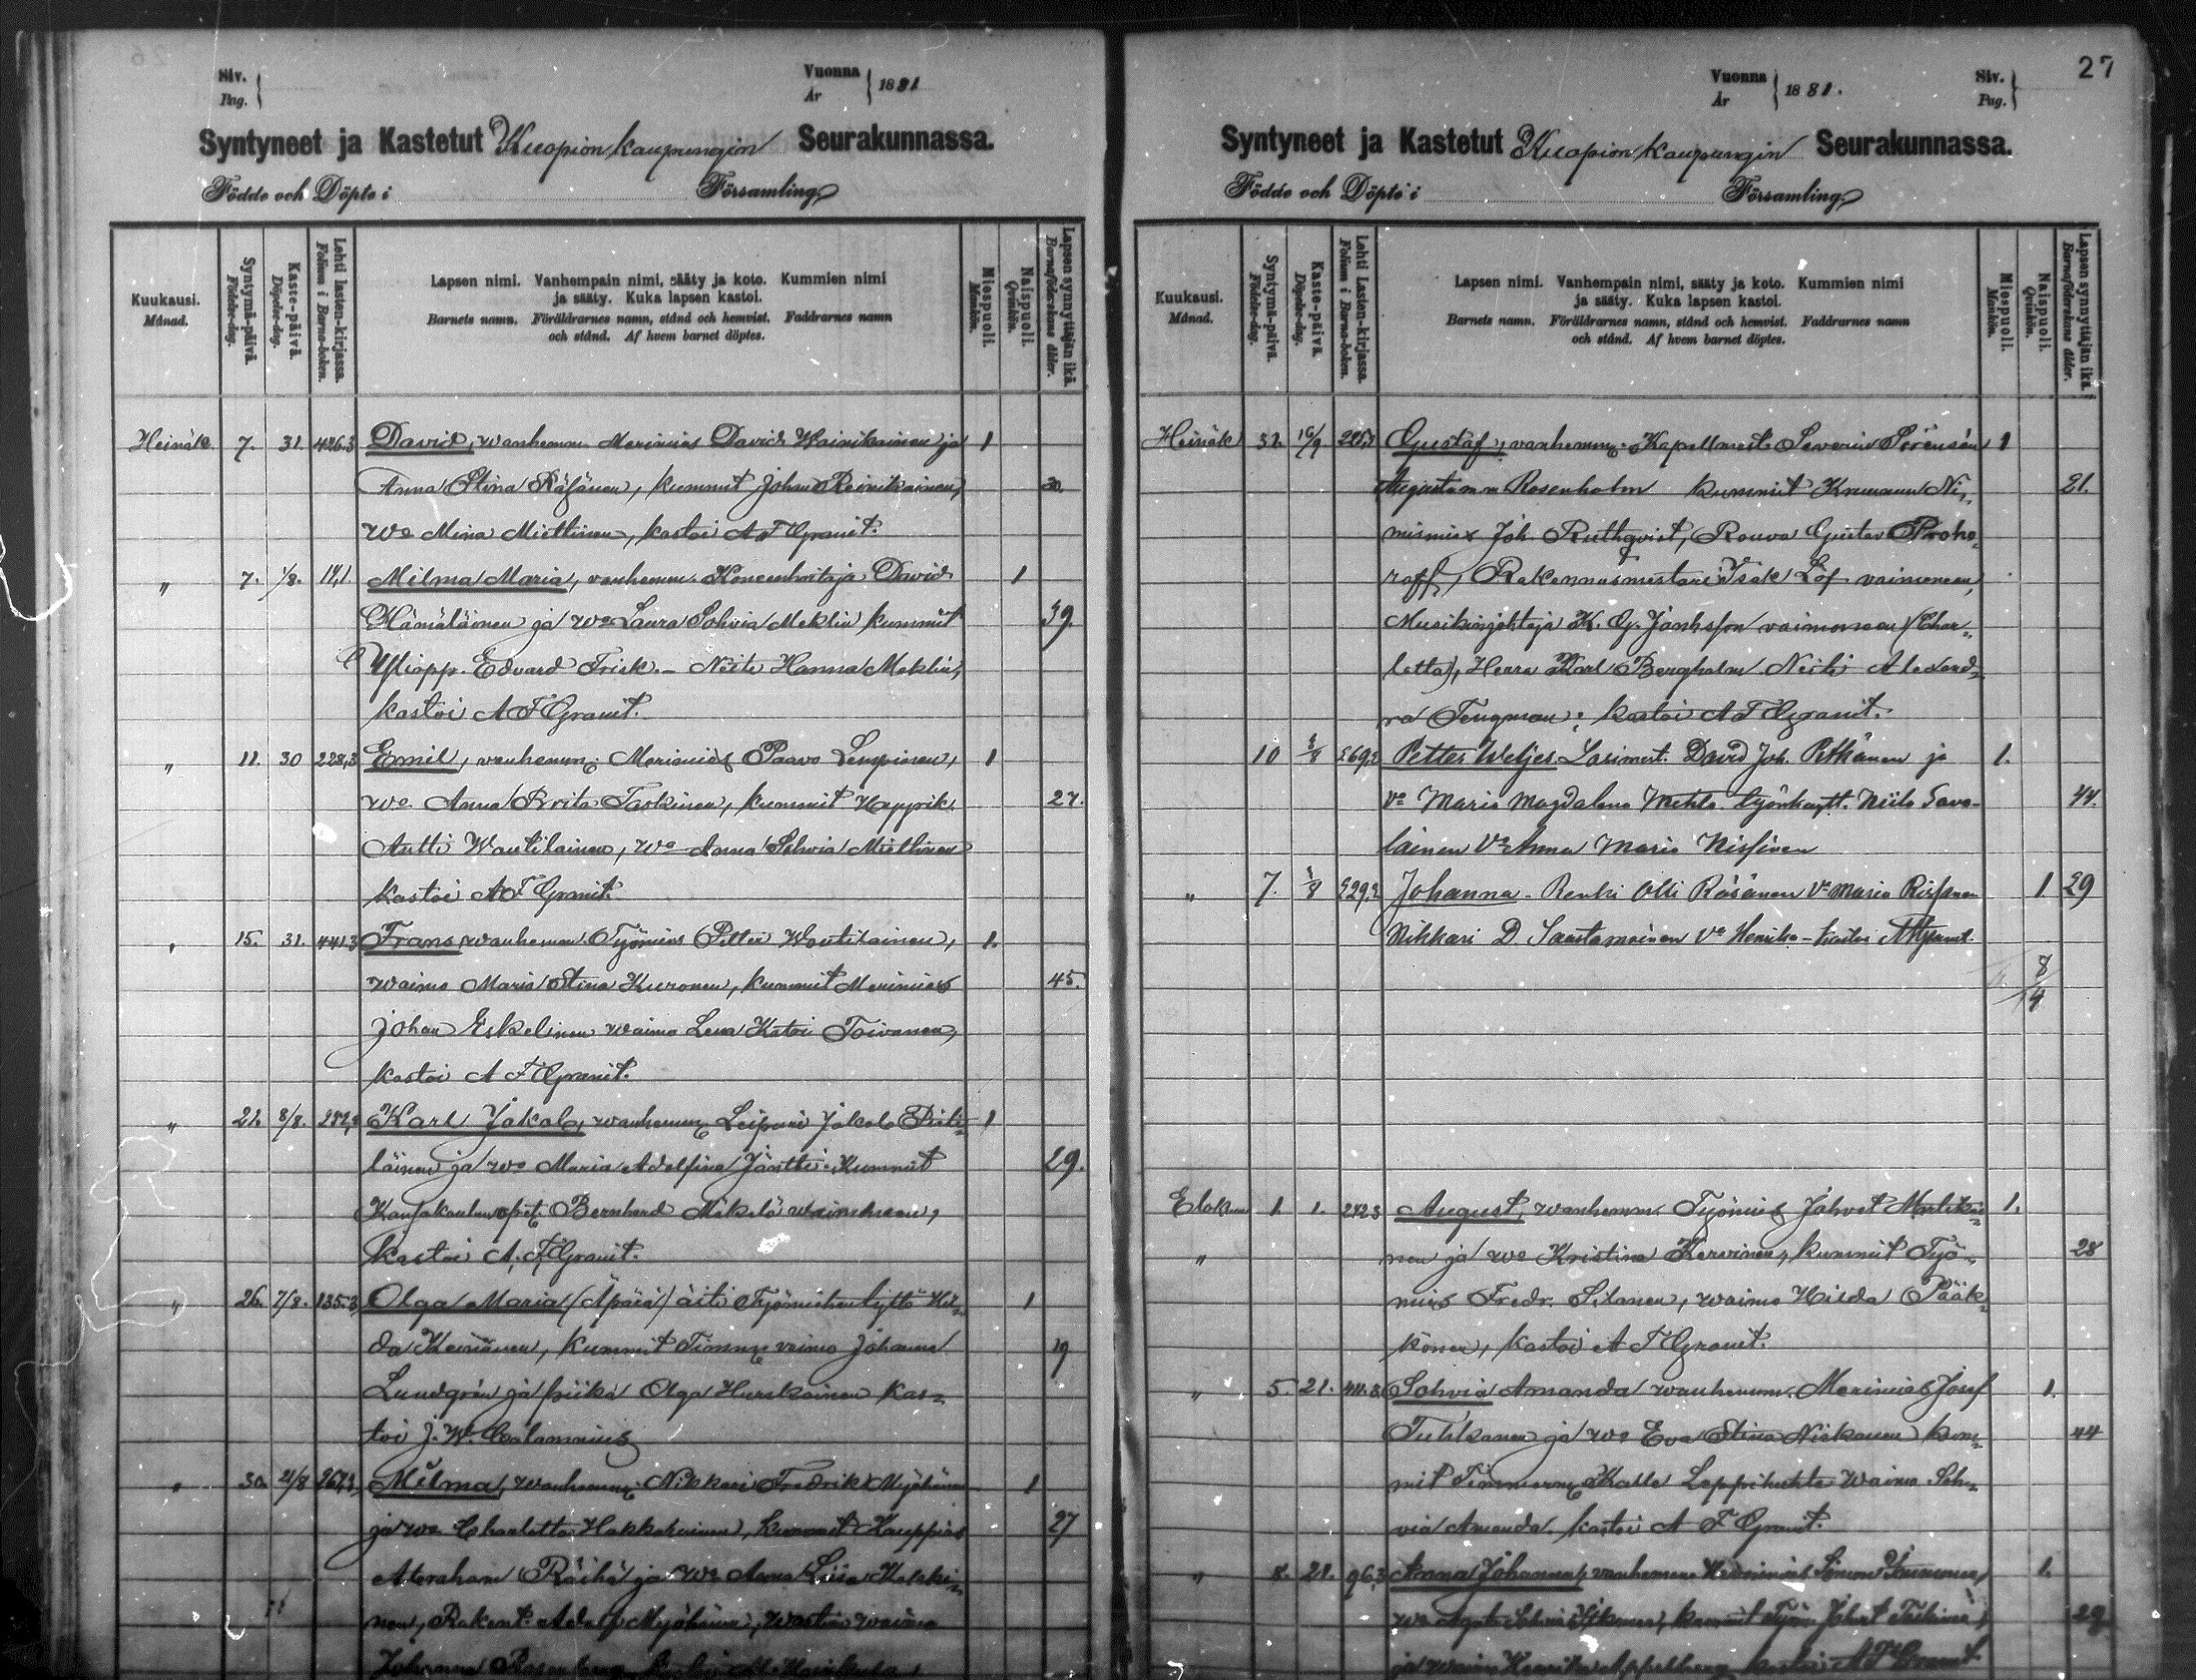 Siv.
Pag.
Vuonna
År
1881
Syntyneet ja Kastetut Kuopion kaupungin Seurakunnassa.
Födde och Döpte i Församling
Kuukausi.
Månad.
Syntymä-päivä.
Födelse-dag.
Kaste-päivä.
Döpelse-dag.
Lehti lasten-kirjassa.
Folium i Barna-boken.
Lapsen nimi. Vanhempain nimi, sääty ja koto. Kummien nimi
ja sääty. Kuka lapsen kastoi.
Barnets namn. Föräldrarnes namn, stånd och hemvist. Faddrarnes namn
och stånd. Af hvem barnet döptes.
Miespuoli.
Mankön.
Naispuoli.
Qvinkön.
Lapsen synnyttäjän ikä.
Barnaföderskans ålder.
Heinäk. 7. 31. 426.3 David, wanhemm. Merimies David Wainikainen ja 1
Anna Stina Räsänen, kummit Johan Reinikainen, 30.
wo Mina Miettinen, kastoi A F Granit.
" 7. 1/8. 14,1. Milma Maria, vanhemm. David 1
Hämäläinen ja wo Laura Sohvia Meklin kummit 39.
Yliopp. Edvard Frisk. - Neite Hanna Meklin,
kastoi A F Granit.
" 11. 30 228,3 Emil, vanhemm. Merimies Paavo Lempinen, 1
wo. Anna Brita Taskinen, kummit 27.
Antti Wautilainen, wo Anna Sohvia Miettinen
kastoi A F Granit.
" 15. 31. 441.3 Frans, wanhemm. Työmies Petter Woutilainen, 1.
waimo Maria Stina Kuronen, kummit Merimies 45.
Johan Eskelinen waimo Lena Katri Toivanen,
kastoi A F Granit.
" 21. 8/8. Karl Jakob, wanhemm. Leipuri Jakob 1
läinen ja wo Maria Adolfina Jäntti. Kummit 29.
Bernhard Mäkelä waimoneen,
kastoi A. F. Granit.
" 26. 7/8. 135.3 Olga Maria (Äpärä) äiti Työmiehen tyttö Hil- 1
da Keinänen, kummit waimo Johanna 19
Lundgrén ja piika Olga Hurskainen kas-
toi J. W. Calamnius
" 30. 21/8 267.3 Milma, wanhemm. Nikkari Fredrik Myöhänen 1
ja wo Charlotta Hakkarainen, kummit Kauppias 27
Abraham Räihä ja wo Anna Liisa
nen, Adolf Myöhänen, waimo
Johanna Rosenberg
27
Vuonna
År
1881.
Siv.
Pag.
Syntyneet ja Kastetut Kuopion kaupungin Seurakunnassa.
Födde och Döpte i Församling
Kuukausi.
Månad.
Syntymä-päivä.
Födelse-dag.
Kaste-päivä.
Döpelse-dag.
Lehti Lasten-kirjassa.
Folium i Barna-boken.
Lapsen nimi. Vanhempain nimi, sääty ja koto. Kummien nimi
ja sääty. Kuka lapsen kastoi.
Barnets namn. Föräldrarnes namn, stånd och hemvist. Faddrarnes namn
och stånd. Af hvem barnet döptes.
Miespuoli.
Mankön.
Naispuoli.
Qvinkön.
Lapsen synnyttäjän ikä.
Barnaföderskans ålder.
Heinäk 31. 16/9 Gustaf, vanhemm. Kapellmest. Severin Sörensén 1
Rosenholm kummit Kruunun Ni- 21.
mismies Joh. Ruthqvist, Rouva Gustava Proho-
roff, Rakennusmestari Isak Löf vaimoneen,
Musikinjohtaja K. G. Jonhsson vaimoneen (Char-
lotta), Herra Karl Bergholm Neiti Alexand-
ra Tengman; kastoi A F Granit.
10 269,2 Petter Weljes. Lasimest. David Joh. Pitkänen ja 1.
Vo Maria Magdalena Mehto. Niilo Savo- 44.
lainen Vo Anna Maria Nissinen
" 7. 229,2 Johanna - Renki Olli Räsänen Vo Maria 1 29
Nikkari D Saastamoinen Vo Henrika - kastoi A F Granit.
8
9
Elokuu 1. 1. 242.3 August, wanhemm. Työmies Johvet Martikai- 1.
" nen ja wo Kristina Kervinen, kummit Työ- 28
mies Fredr. Silanen, waimo Hilda Pääk-
könen, kastoi A F Granit.
" 5. 21. Sohvia Amanda wanhemm. Merimies Josef 1.
Tuhkanen ja wo Eva Stina Niskanen kum- 44
mit Kalle Leppihuhta waimo Soh-
via Amanda. kastoi A F Granit.
" 8. 21. 96.3 Anna Johanna, vanhemm. 1.
wo kummit 29
ja waimo kastoi A F Granit